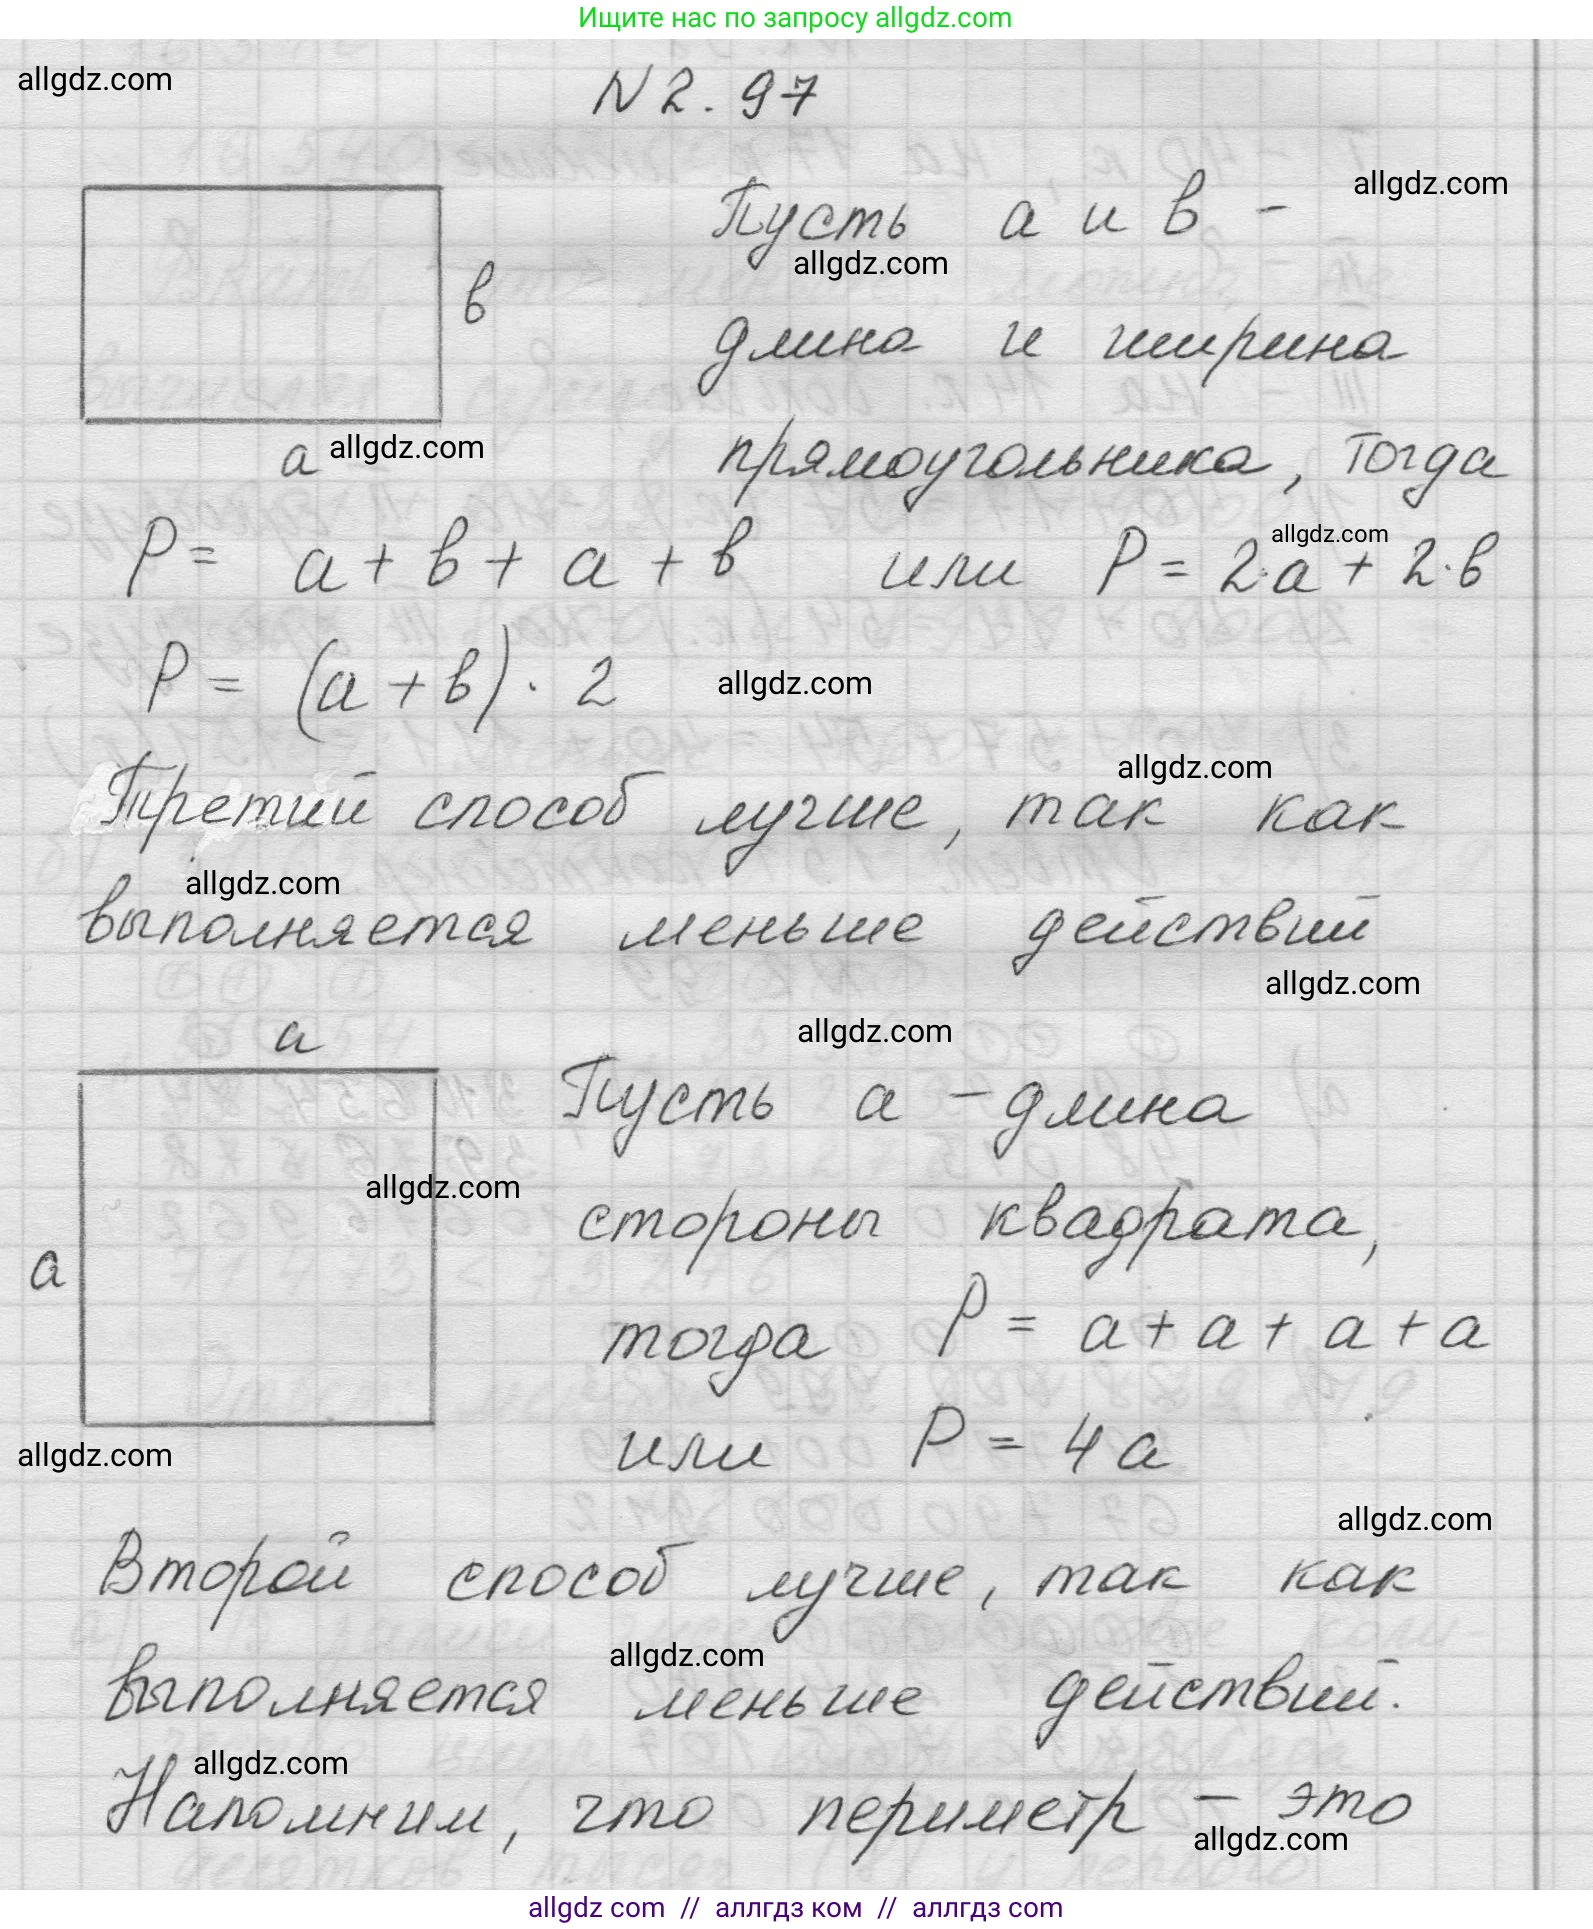 Ищите нас по запросу allgdz.com
allgdz.com
N 2. 97
Пусть а и в -
allgdz.com
allgdz.com
в
длина и ширина
а
allgdz.com
прямоугольника, тогда
allgdz.com
P = а + в + а + в или P = 2·а + 2·в
P = (а + в) · 2
allgdz.com
allgdz.com
Третий способ лучше, так как
allgdz.com
выполняется меньше действий
allgdz.com
а
allgdz.com
Пусть а - длина
allgdz.com
стороны квадрата,
а
тогда P = а + а + а + а
или P = 4а
allgdz.com
allgdz.com
Второй способ лучше, так как
allgdz.com
выполняется меньше действий.
allgdz.com
Напомним, что периметр - это
allgdz.com
allgdz com // аллгдз ком // аллгдз com